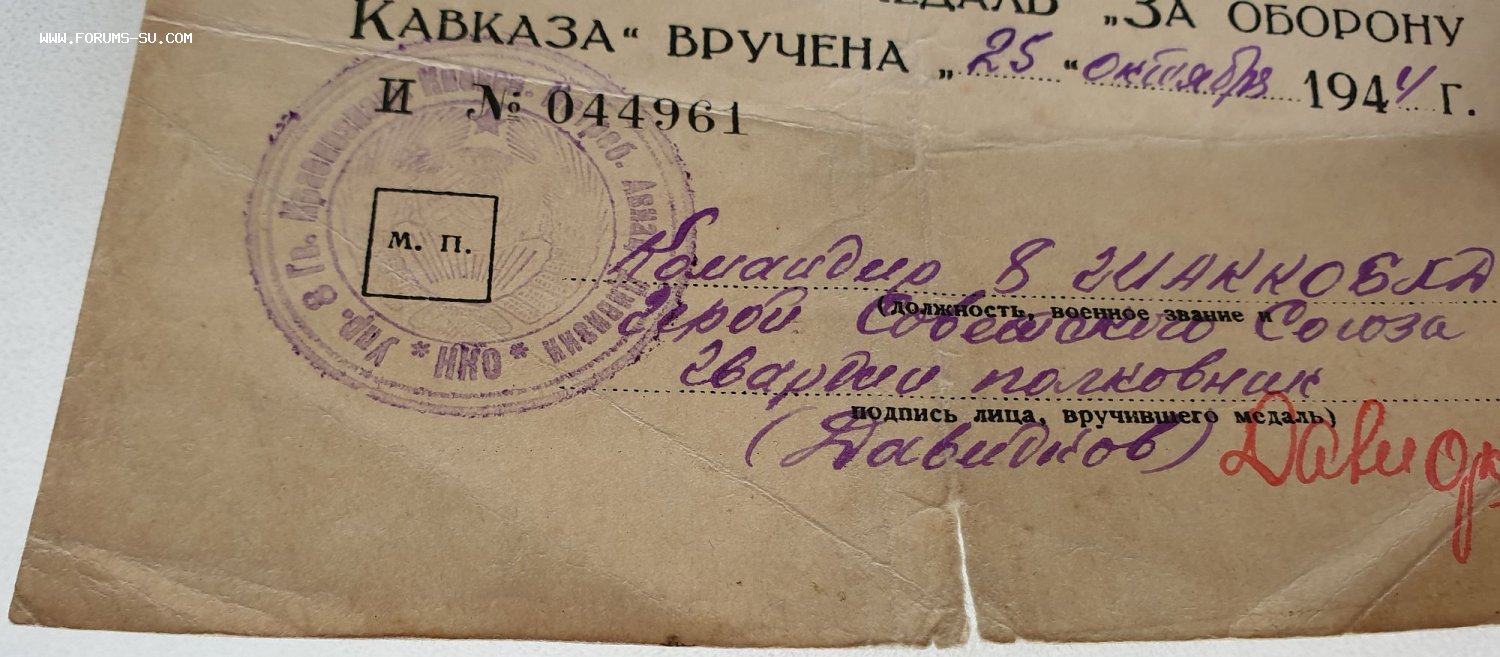 WWW.FORUMS-SU.COM
МЕДАЛЬ „ЗА ОБОРОНУ
КАВКАЗА“ ВРУЧЕНА „25“ октября 1944 г.
И № 044961
Упр. 8 Гв. Авиац. Дивизии * НКО *
М. П.
Командир 8
(должность, военное звание и
Герой Советского Союза
Гвардии полковник
подпись лица, вручившего медаль)
(Давидков)